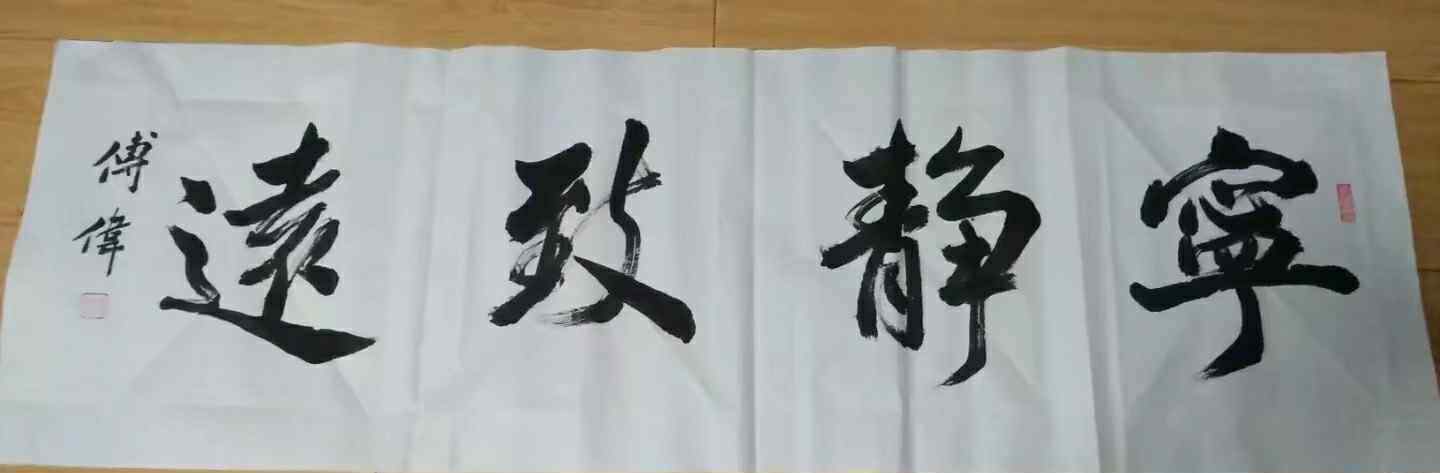 寧静致遠
傅偉